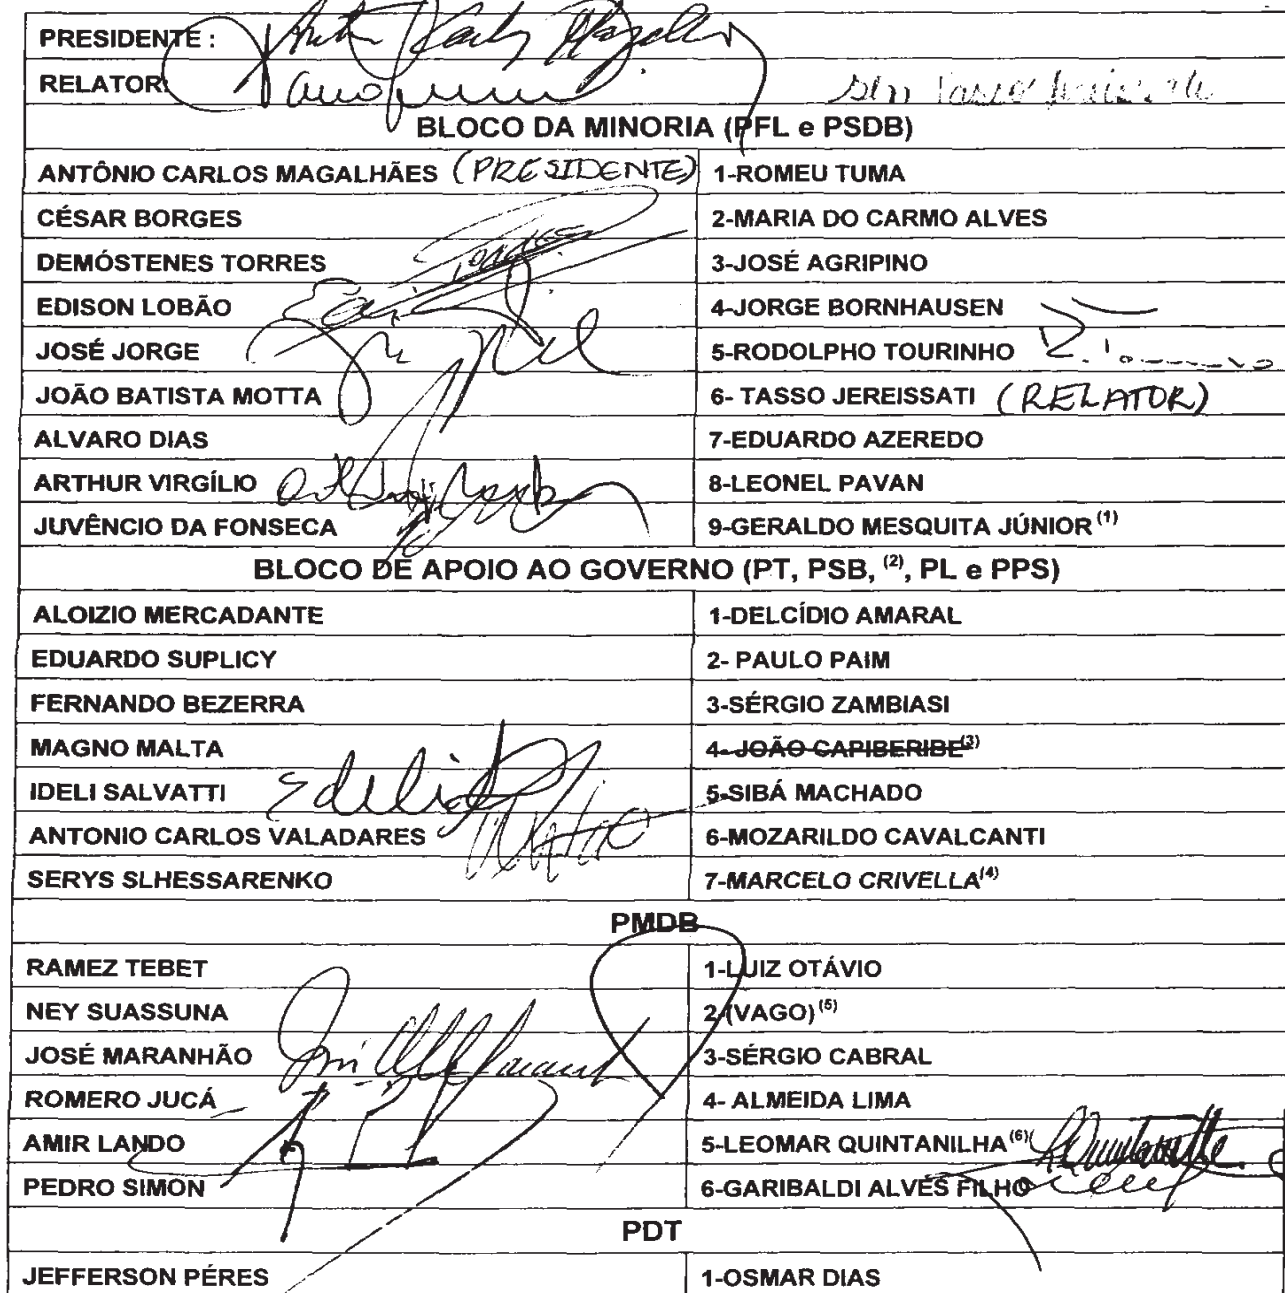 PRESIDENTE :
RELATOR:
BLOCO DA MINORIA (PFL e PSDB)
ANTÔNIO CARLOS MAGALHÃES (PRESIDENTE) 1-ROMEU TUMA
CÉSAR BORGES 2-MARIA DO CARMO ALVES
DEMÓSTENES TORRES 3-JOSÉ AGRIPINO
EDISON LOBÃO 4-JORGE BORNHAUSEN
JOSÉ JORGE 5-RODOLPHO TOURINHO
JOÃO BATISTA MOTTA 6- TASSO JEREISSATI (RELATOR)
ALVARO DIAS 7-EDUARDO AZEREDO
ARTHUR VIRGÍLIO 8-LEONEL PAVAN
JUVÊNCIO DA FONSECA 9-GERALDO MESQUITA JÚNIOR (1)
BLOCO DE APOIO AO GOVERNO (PT, PSB, (2), PL e PPS)
ALOIZIO MERCADANTE 1-DELCÍDIO AMARAL
EDUARDO SUPLICY 2- PAULO PAIM
FERNANDO BEZERRA 3-SÉRGIO ZAMBIASI
MAGNO MALTA 4- JOÃO CAPIBERIBE(3)
IDELI SALVATTI 5-SIBÁ MACHADO
ANTONIO CARLOS VALADARES 6-MOZARILDO CAVALCANTI
SERYS SLHESSARENKO 7-MARCELO CRIVELLA(4)
PMDB
RAMEZ TEBET 1-LUIZ OTÁVIO
NEY SUASSUNA 2-(VAGO) (5)
JOSÉ MARANHÃO 3-SÉRGIO CABRAL
ROMERO JUCÁ 4- ALMEIDA LIMA
AMIR LANDO 5-LEOMAR QUINTANILHA (6)
PEDRO SIMON 6-GARIBALDI ALVES FILHO
PDT
JEFFERSON PÉRES 1-OSMAR DIAS